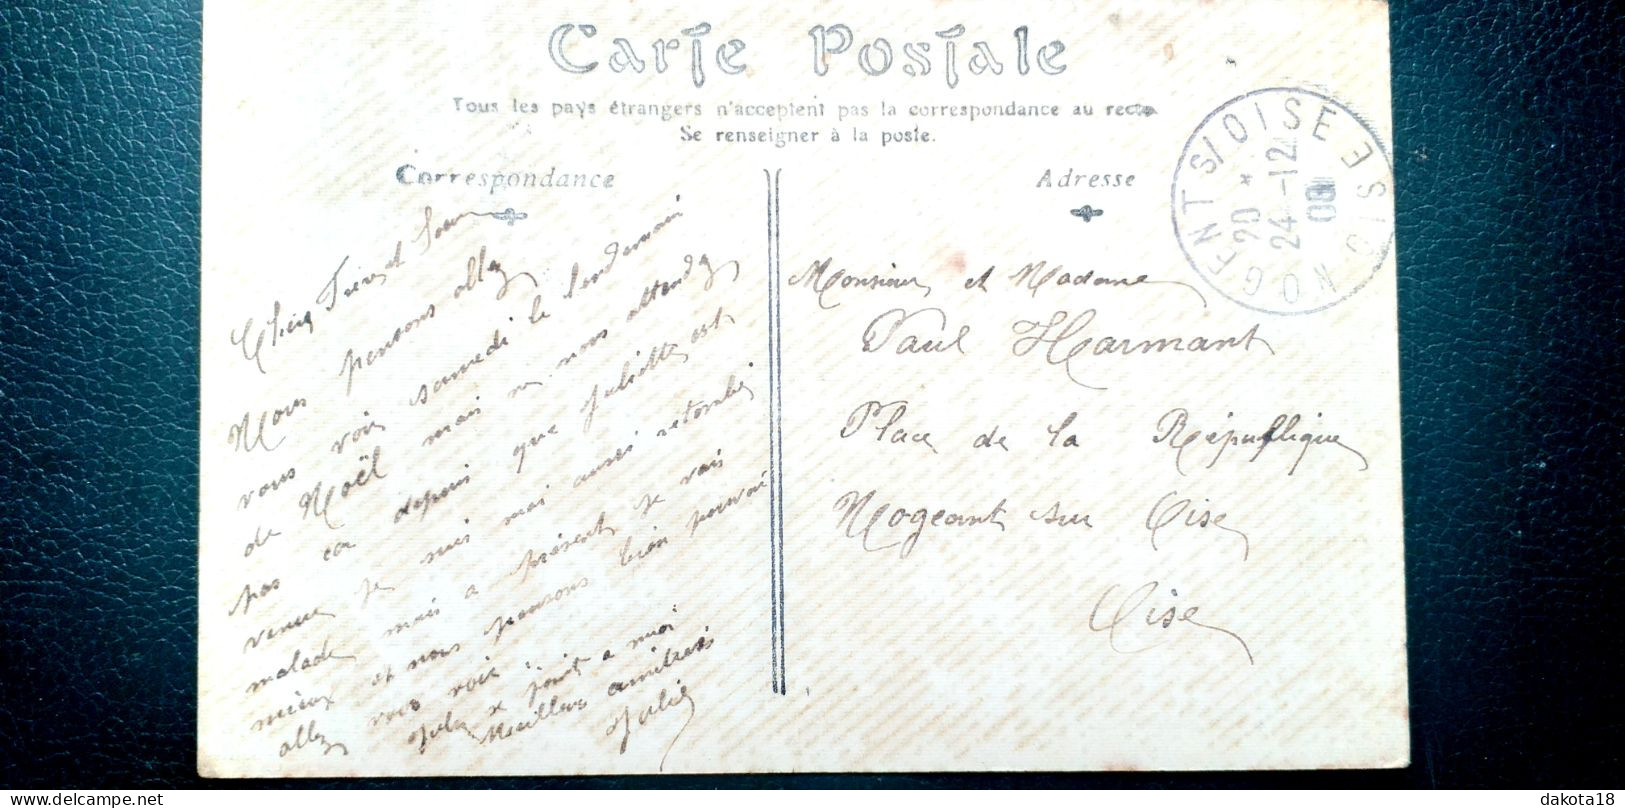 Carte Postale
Tous les pays étrangers n'acceptent pas la correspondance au recto
Se renseigner à la poste.
Correspondance
Adresse
NOGENT S/OISE OISE
20 *
24 -12
08
Chers Frère et Soeur
Nous pensons allez
vous voir samedi le lendemain
de Noël mais ne nous attendez
pas car depuis que Juliette est
venue je suis moi aussi retombé
malade mais a présent je vais
mieux et nous pensons bien pouvoir
allez vous voir
se joint a moi
Meilleurs amitiées
Julie
Monsieur et Madame
Paul Harmant
Place de la République
Nogeant sur Oise
Oise
delcampe.net
dakota18